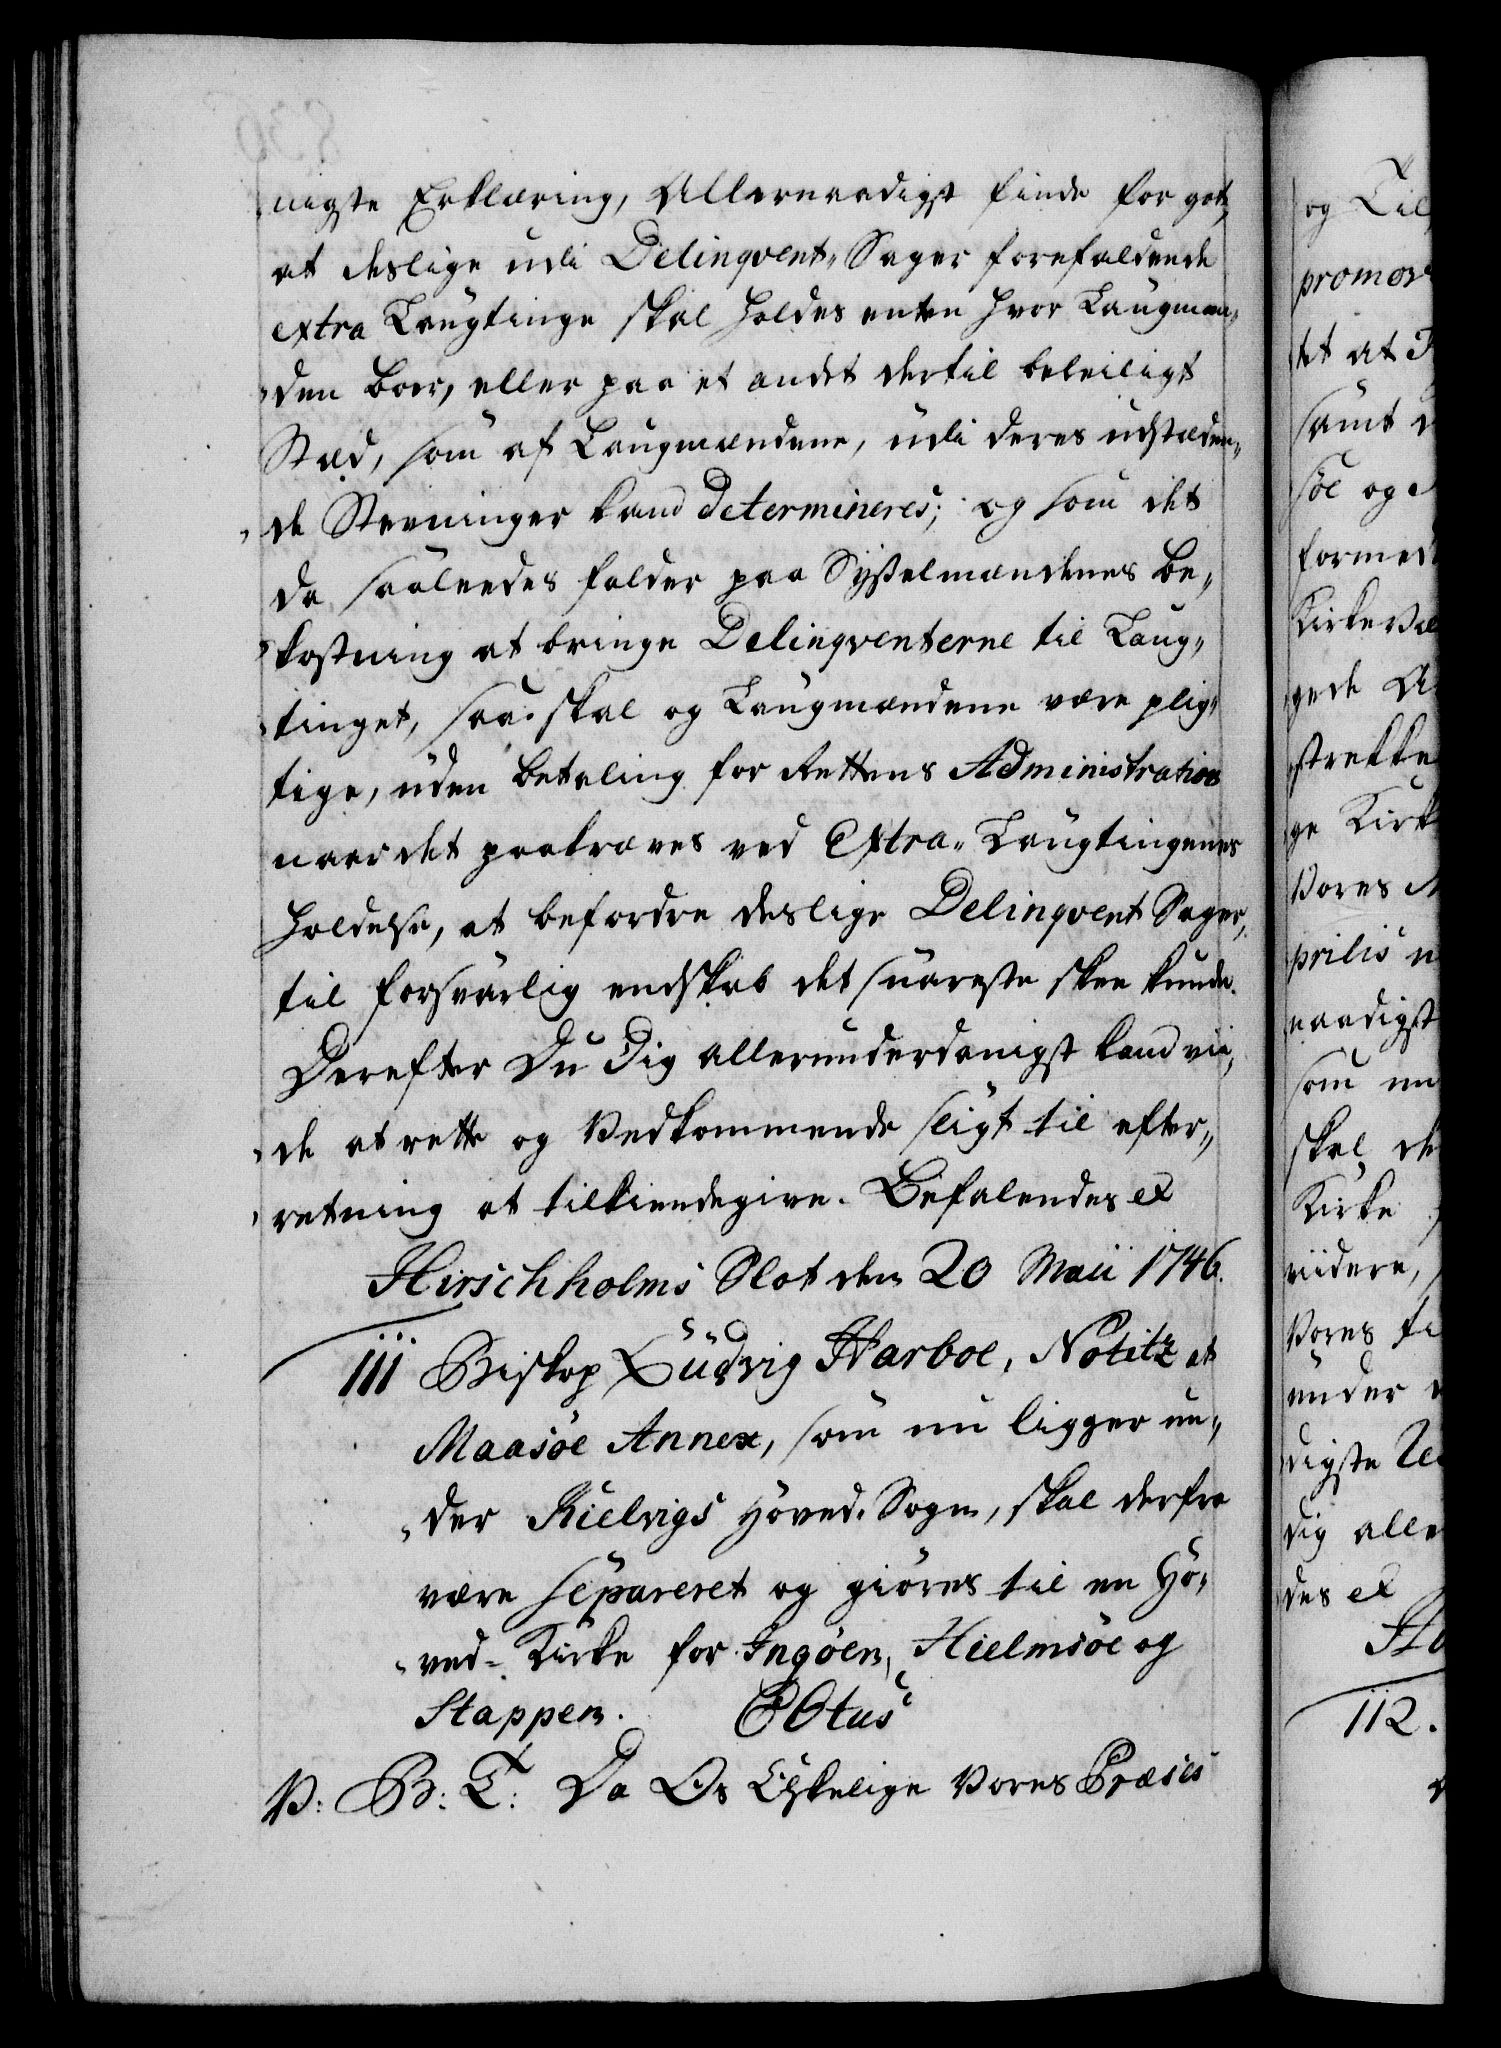 nigste Erklæring, Allernaadigst finde for got,
at deslige udi Delinqvent-Sager forefaldende
extra Laugtinge skal holdes enten hvor Laugman-
den boer, eller paa et andet dertil beleiligt
Stæd, som af Laugmændene, udi deres udstæden-
de Stevninger kand determineres; og som det
da saaleedes falder paa Sysselmændenes Be-
kostning at bringe Delinqventerne til Laug-
tinget, saa skal og Laugmændene være plig-
tige, uden betaling for Rettens Administration
naar det paakræves ved Extra-Laugtingenes
Holdelse, at befordre deslige Delinqvent Sager,
til forsvarlig endskab det snareste skee kunde.
Derefter Du Dig allerunderdanigst kand vii-
de at rette og Vedkommende sligt til efter-
retning at tilkiendegive. Befalendes ex
Hirschholms Slot den 20 Maii 1746.
111 Biskop Ludvig Harboe, Notitz at
Maasöe Annex, som nu ligger un-
der Kielvigs Hoved-Sogn, skal derfra
være separeret og giöres til en Ho-
ved-Kirke for Ingöen, Hielmsöe og
Stappen.
V: B: T: Da Os Elskelige Vores Præses
og Til
samt
söe og
gede
ge Kirk
Vores
prilis
naadigst
som
skal de
Kirke
viidere,
Vores
under
digste
Dig alle
des ex
112.